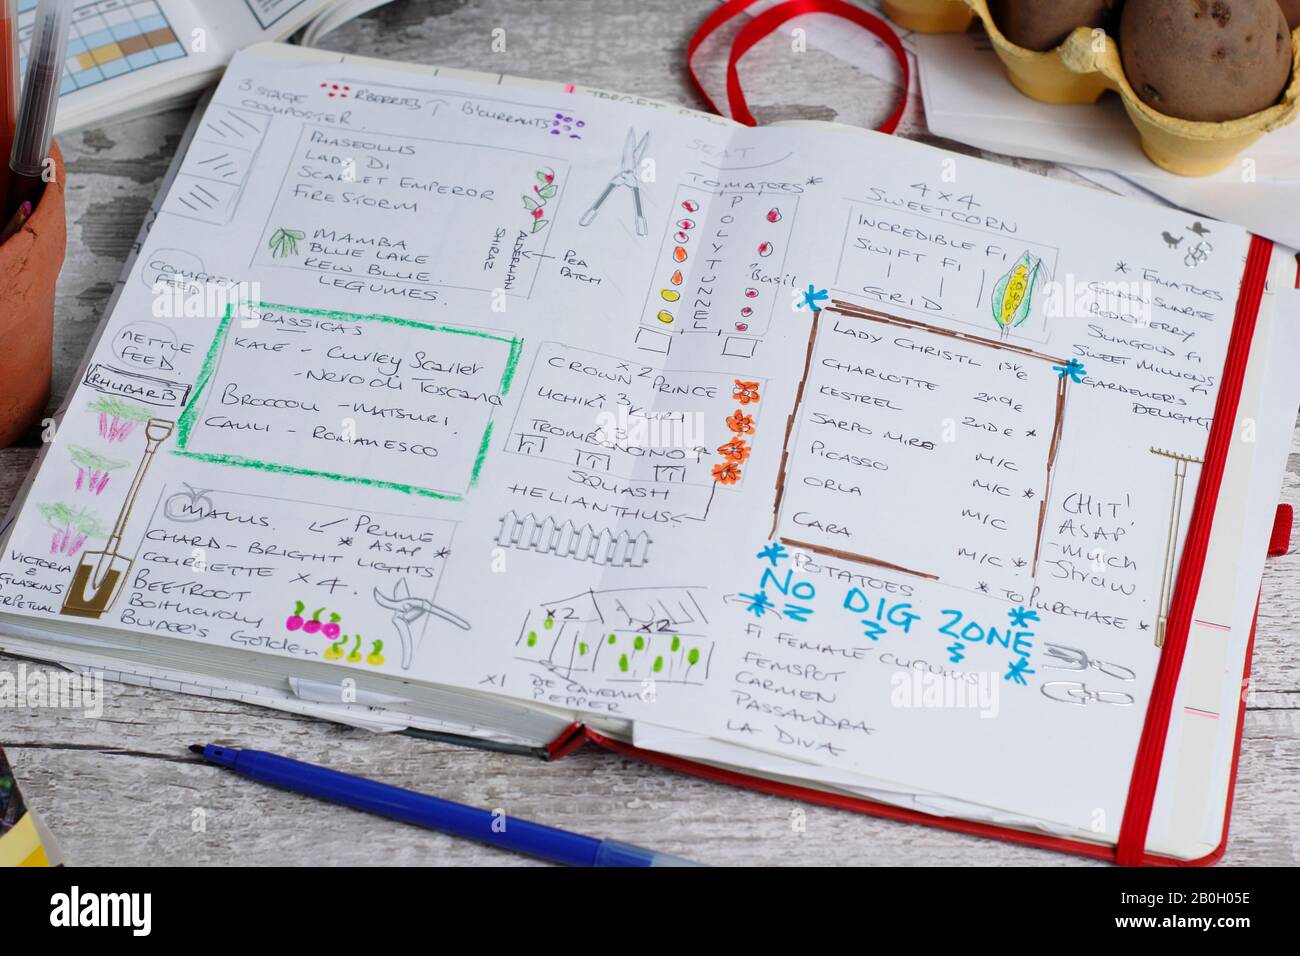 3 STAGE
COMPOSTER.
R'BERRIES
B'CURRANTS
TARGET
PHASEOLUS
LADY DI
SCARLET EMPEROR
FIRESTORM
MAMBA
BLUE LAKE
KEW BLUE.
LEGUMES.
SHIRAZ
ALDERMAN
PEA
PATCH
COMFREY
FEED
NETTLE
FEED
RHUBARB
VICTORIA
&
GLASKINS
PERPETUAL
BRASSICAS
KALE - CURLEY SCARLET
- NERO DI TOSCANA
BROCCOLI - MATSURI.
CAULI - ROMANESCO
MALUS.
PRUNE
* ASAP *
CHARD - BRIGHT LIGHTS
COURGETTE x 4.
BEETROOT
Bolthardy
Burpee's Golden
SEAT
TOMATOES *
POLYTUNNEL
Basil
x 2
CROWN PRINCE
x 3
UCHIKI KURI
x 3
TROMBONCINO
SQUASH
HELIANTHUS
x2
x2
x1
DE CAYENNE
PEPPER
4 x 4
SWEETCORN
INCREDIBLE F1
SWIFT F1
GRID
* TOMATOES
GOLDEN SUNRISE
RED CHERRY
SUNGOLD F1
SWEET MILLIONS
F1
GARDENER'S
DELIGHT
LADY CHRISTL 1st E
CHARLOTTE 2nd E
KESTREL 2ND E *
SARPO MIRA M/C
PICASSO M/C *
ORLA M/C
CARA M/C *
POTATOES
* TO PURCHASE *
CHIT!
ASAP
- MUCH
STRAW.
NO DIG ZONE
F1 FEMALE CUCUMS.
FEMSPOT
CARMEN
PASSANDRA
LA DIVA
alamy
alamy
Image ID: 2B0H05E
www.alamy.com